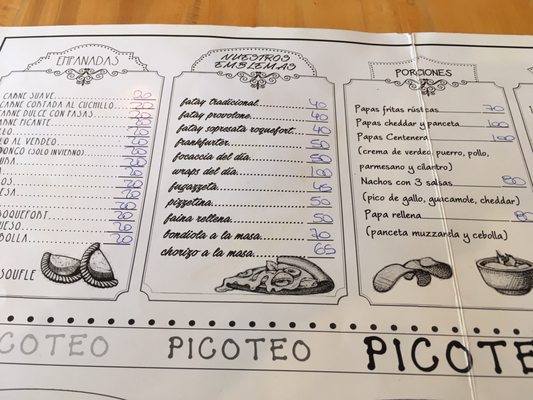 EMPANADAS
CARNE SUAVE 20
CARNE CORTADA AL CUCHILLO 20
CARNE DULCE CON PASAS 20
CARNE PICANTE 20
LLO 20
LO AL VERDEO 20
(SOLO INVIERNO) 20
20
20
20
20
20
ROQUEFORT 20
UESO 20
BOLLA 20
SOUFLE
NUESTROS
EMBLEMAS
fatay tradicional 40
fatay provolone 40
fatay sopresata roquefort 40
frankfurter 50
focaccia del día 50
wraps del día 100
fugazzeta 45
pizzetina 50
faina rellena 50
bondiola a la masa 70
chorizo a la masa 65
PORCIONES
Papas fritas rústicas 70
Papas cheddar y panceta 100
Papas Centenera 100
(crema de verdeo, puerro, pollo,
parmesano y cilantro)
Nachos con 3 salsas 80
(pico de gallo, guacamole, cheddar)
Papa rellena 8
(panceta muzzarella y cebolla)
COTEO
PICOTEO
PICOTE